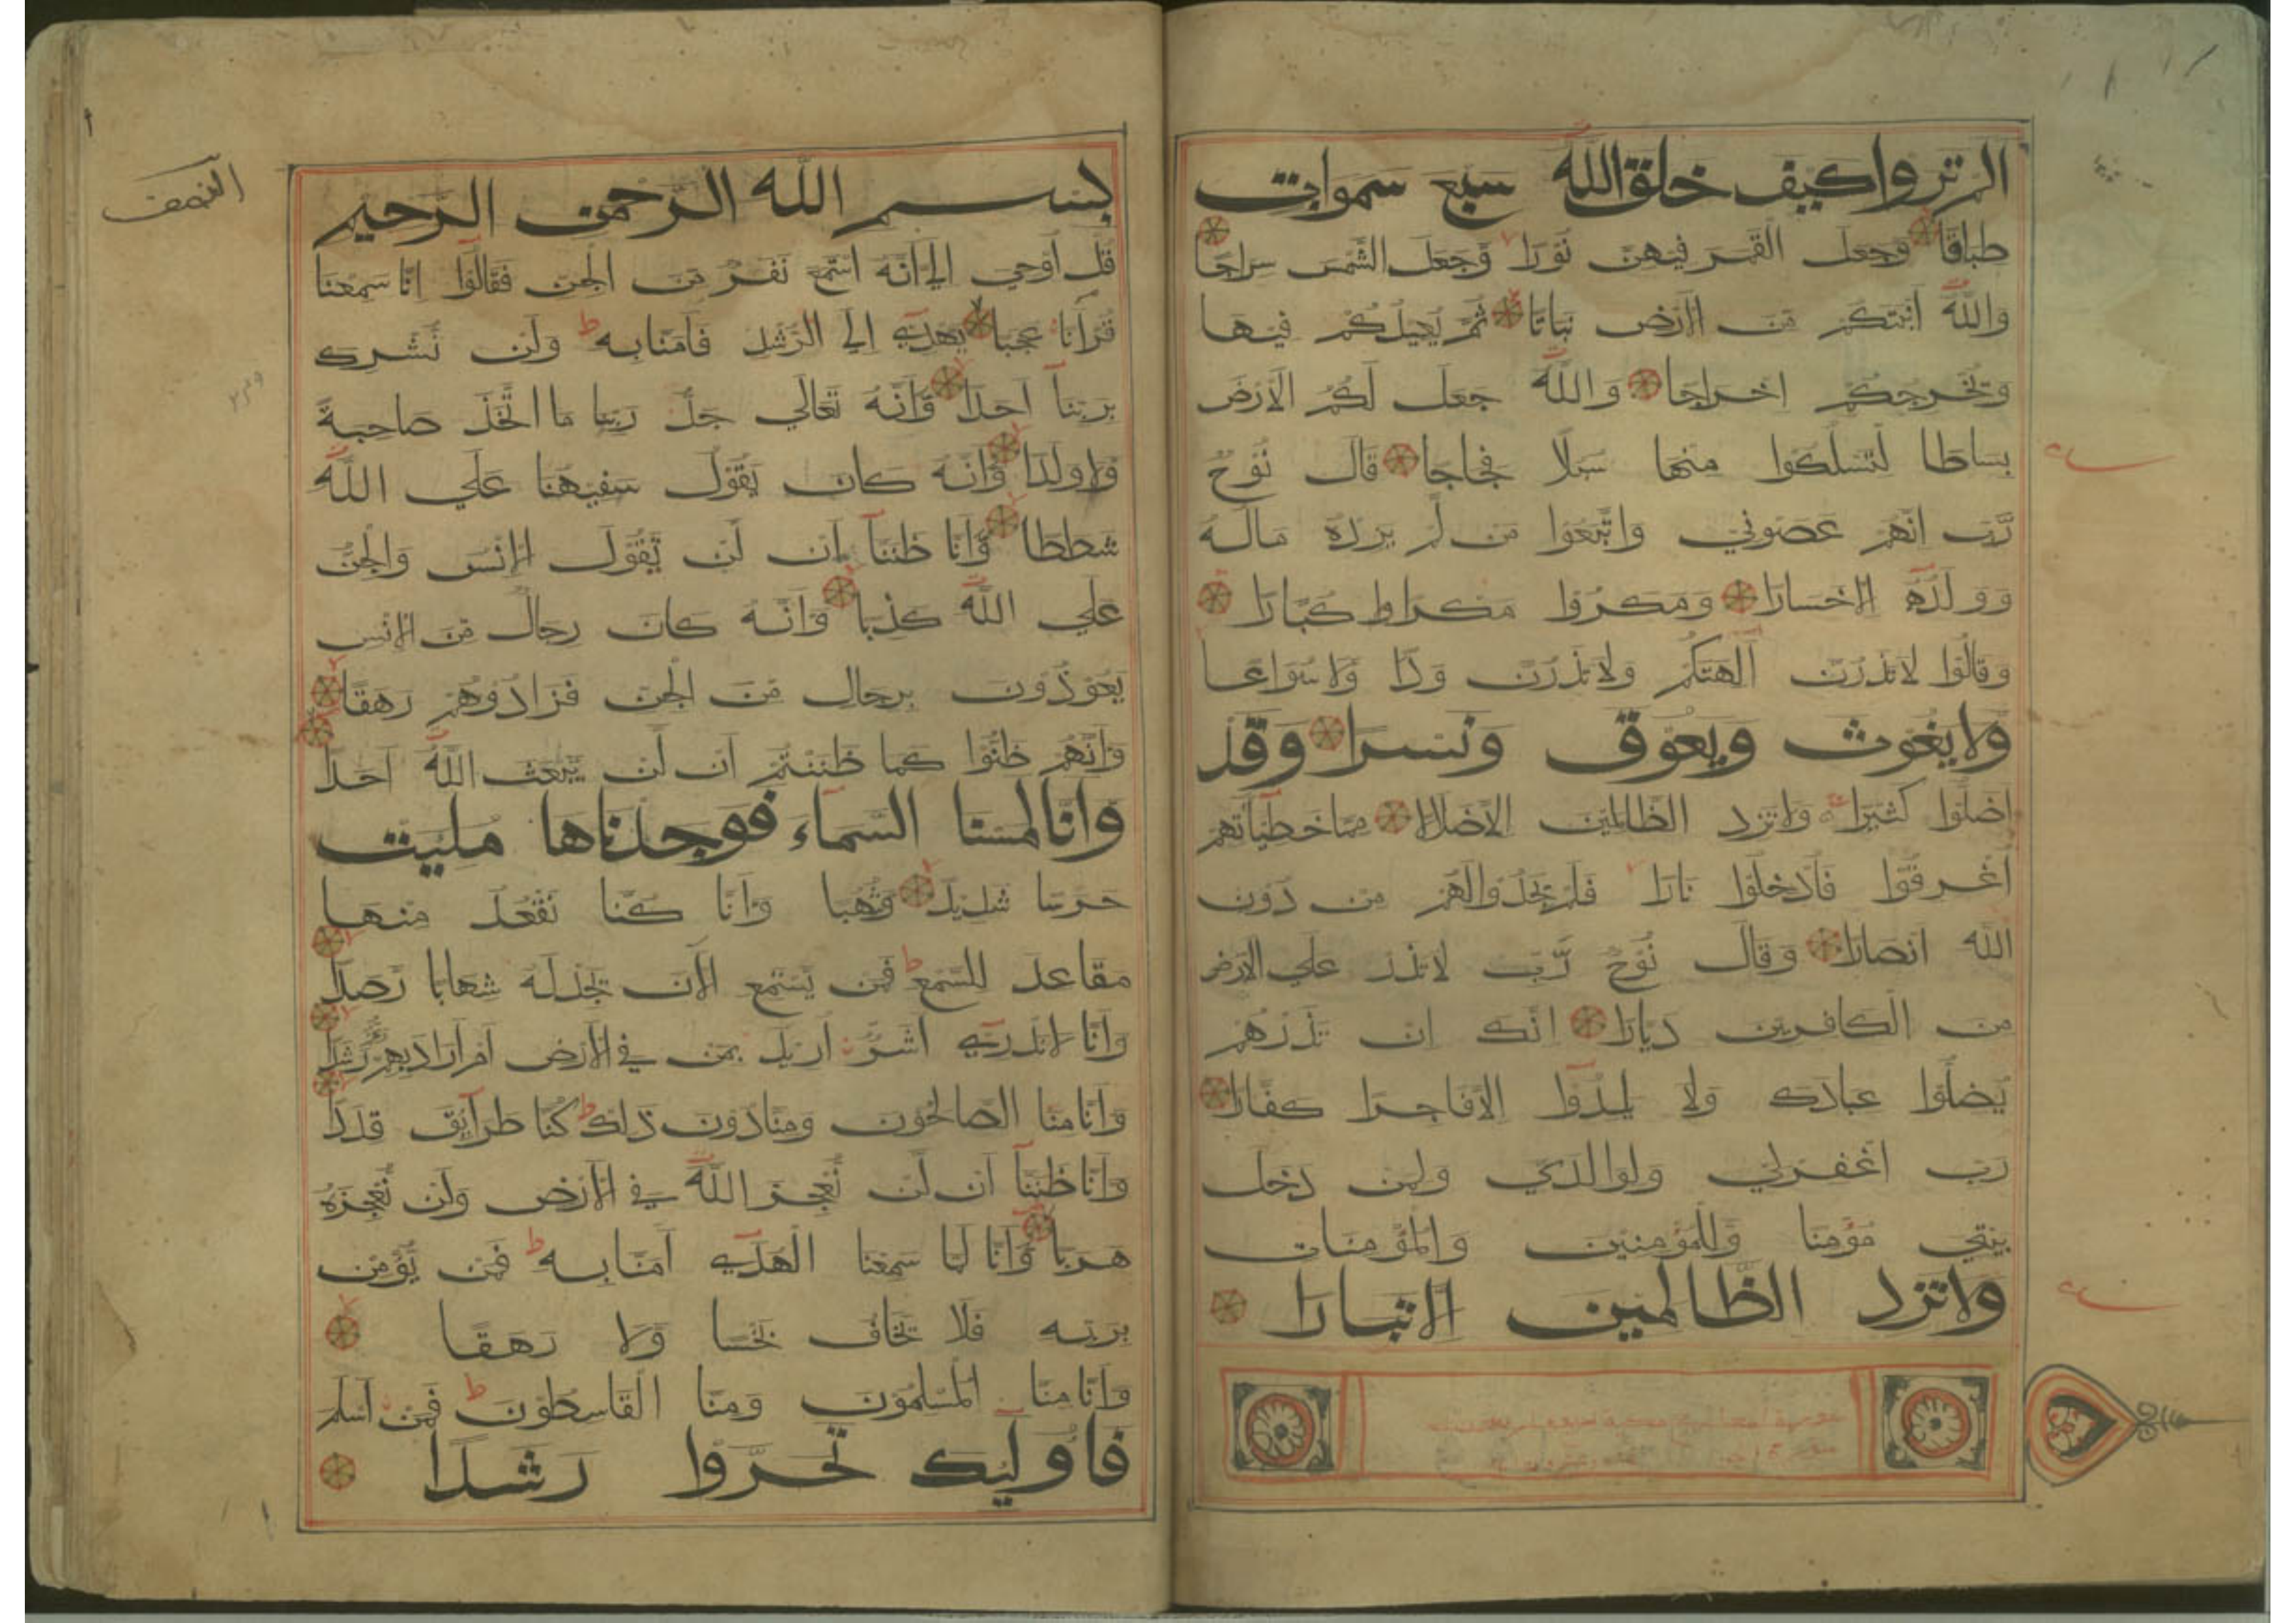 الم تروا كيف خلق الله سبع سموات
طباقا وجعل القمر فيهن نورا وجعل الشمس سراجا
والله انبتكم من الارض نباتا ثم يعيدكم فيها
ويخرجكم اخراجا والله جعل لكم الارض
بساطا لتسلكوا منها سبلا فجاجا قال نوح
رب انهم عصوني واتبعوا من لم يزده ماله
وولده الا خسارا ومكروا مكرا كبارا
وقالوا لا تذرن آلهتكم ولا تذرن ودا ولا سواعا
ولا يغوث ويعوق ونسرا وقد
اضلوا كثيرا ولا تزد الظالمين الا ضلالا مما خطيآتهم
اغرقوا فادخلوا نارا فلم يجدوا لهم من دون
الله انصارا وقال نوح رب لا تذر علي الارض
من الكافرين ديارا انك ان تذرهم
يضلوا عبادك ولا يلدوا الا فاجرا كفارا
رب اغفرلي ولوالدي ولمن دخل
بيتي مؤمنا وللمؤمنين والمؤمنات
ولا تزد الظالمين الا تبارا
النصف
بسم الله الرحمن الرحيم
قل اوحي الي انه استمع نفر من الجن فقالوا انا سمعنا
قرآنا عجبا يهدي الي الرشد فآمنا به ولن نشرك
بربنا احدا وانه تعالي جد ربنا ما اتخذ صاحبة
ولا ولدا وانه كان يقول سفيهنا علي الله
شططا وانا ظننا ان لن تقول الانس والجن
علي الله كذبا وانه كان رجال من الانس
يعوذون برجال من الجن فزادوهم رهقا
وانهم ظنوا كما ظننتم ان لن يبعث الله احدا
وانا لمسنا السماء فوجدناها مليت
حرسا شديدا وشهبا وانا كنا نقعد منها
مقاعد للسمع فمن يستمع الآن يجد له شهابا رصدا
وانا لا ندري اشر اريد بمن في الارض ام اراد بهم ربهم رشدا
وانا منا الصالحون ومنا دون ذلك كنا طرآيق قددا
وانا ظننا ان لن نعجز الله في الارض ولن نعجزه
هربا وانا لما سمعنا الهدي آمنا به فمن يؤمن
بربه فلا يخاف بخسا ولا رهقا
وانا منا المسلمون ومنا القاسطون فمن اسلم
فاولئك تحروا رشدا